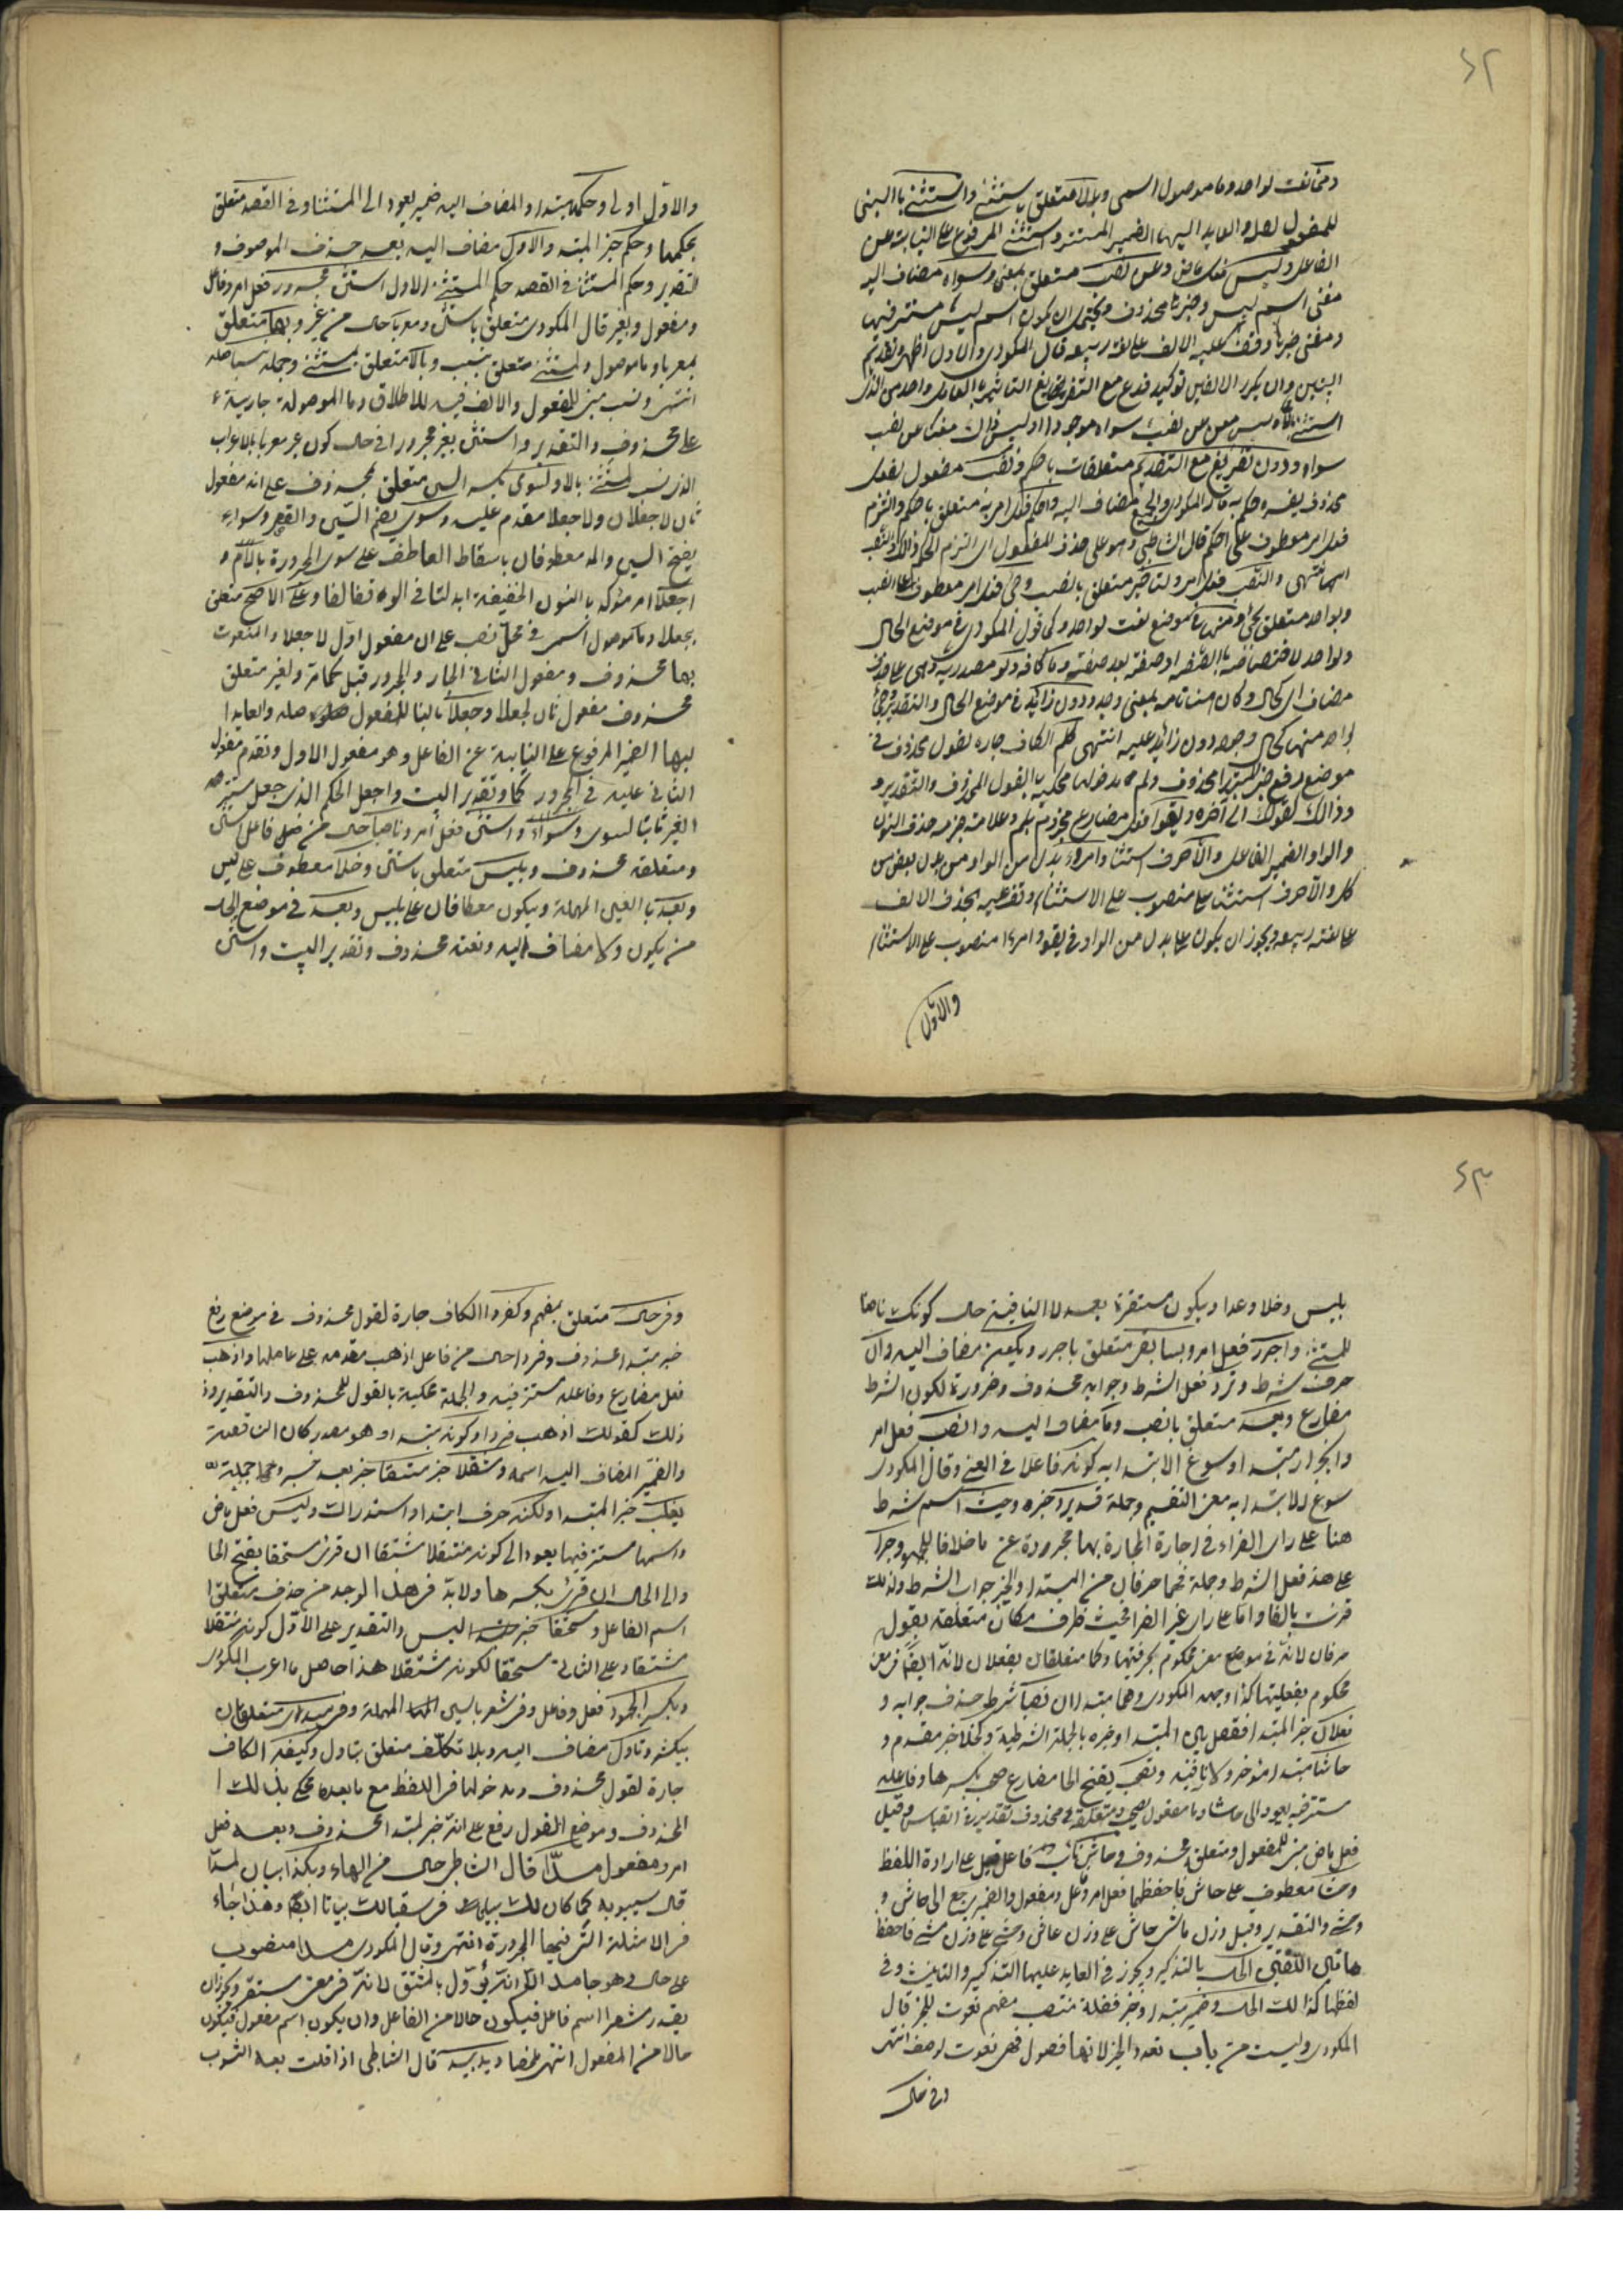 ٤٢
لواحد وما موصول اسمى وبالا متعلق باستثنى واستثنى بالبنى
للمفعول صله والعايد اليها الضمير المستتر فى استثنى المرفوع على النيابة عن
الفاعل وليس فعل ماض وعن نصب متعلق بمغنى وسواه مضاف اليه
مغنى اسم ليس وخبرها محذوف ويحتمل ان يكون اسم ليس مستتر فيها
ومغنى خبرها وقف عليه بالالف على لغة ربيعه قال المكودى والاول اظهر وتقديم
البيتين وان يكرر الا لغير توكيد فدع مع التفريغ التاثير بالعامل واحد من الذى
استثنى بالا وليس مغن عن نصب سواه موجودا او ليس ذلك مغنيا عن نصب
سواه ودون تفريغ مع التقديم متعلقات باحكم ونصب مفعول لفعل
محذوف يفسره احكم به قاله المكودى والجميع مضاف اليه واحكم فعل امر به متعلق باحكم والتزم
فعل امر معطوف على احكم قال الشاطبى وهو على حذف المفعول اى التزم الحكم بذلك
انتهى وانصب فعل امر ولتاخير متعلق بانصب وجئ فعل امر معطوف على انصب
وبواحد متعلق بجئ ومنها فى موضع نعت لواحد وكما قول المكودى فى موضع الحال
ولواحد لاختصاصه بالصفه او صفة بعد صفة وما كافه ولو مصدريه وهى على حذف
مضاف اى كحال وكان هنا تامه بمعنى وجد ودون زائد فى موضع الحال والتقدير وجئ
بواحد منها كحال وجود دون زائد عليه انتهى كلم الكاف جاره لقول محذوف فى
موضع رفع خبر لمبتدا محذوف ولم مدخولها محكيه بالقول المحذوف والتقدير
وذلك كقولك الى آخره ويفوا فعل مضارع مجزوم بلم وعلامة جزمه حذف النون
والواو الضمير الفاعل والا حرف استثنا وامرؤ بدل من الواو من بدل بعض من
كل والا حرف استثنا على منصوب على الاستثناء وتقف عليه بحذف الالف
على لغة ربيعه ويجوز ان يكون على بدل من الواو فى يفو وامرءا منصوب على الاستثناء
والاول
والاول اولى وحكمها مبتدا والمضاف اليه ضمير يعود الى المستثنا وفى القصد متعلق
بحكمها وحكم خبر المبتدا والاول مضاف اليه بعد حذف الموصوف و
التقدير وحكم المستثنا فى القصد حكم المستثنى الاول استثن مجرور فعل امر وفاعل
ومفعول وبغير قال المكودى متعلق باستثن ومعربا حال من غير وبما متعلق
بمعربا وما موصول ولمستثنى متعلق بنسب وبالا متعلق بمستثنى وجملة نسبا صله
انتهى ونسب مبنى للمفعول والالف فيه للاطلاق وما الموصولة جارية
على محذوف والتقدير واستثن بغير مجرورا فى حال كون غير معربا بالاعراب
الذى نسب لمستثنى بالا ولسوى بكسر السين متعلق بمحذوف على انه مفعول
ثان لاجعلان ولاجعلا مقدم عليه وسوى بضم السين والقصر وسواء
بفتح السين والمد معطوفان باسقاط العاطف على سوى المجرورة باللام و
اجعلا امر مؤكد بالنون الخفيفة ابدلتا فى الوقف الفا وعلى الاصح متعلق
بجعلا وما موصول اسمى فى محل نصب على ان مفعول اول لاجعلا والمنعوت
بها محذوف ومفعول الثانى الجار والمجرور قبل كما مر ولغير متعلق
محذوف مفعول ثان لجعلا وجعلا بالبنا للمفعول صله والعايد ا
ليها الضمير المرفوع على النيابة عن الفاعل وهو مفعول الاول وتقدم مفعول
الثانى عليه فى المجرور كما وتقدير البيت واجعل الحكم الذى جعل
لغير ثابتا لسوى وسواء واستثن فعل امر وناصبا حال من فاعل استثن
ومتعلقه محذوف وبليس متعلق باستثن وخلا معطوف على ليس
وبعدا بالعين المهملة وبيكون معطافان على بليس وبعد فى موضع الحال
من يكون ولا مضاف اليه ونعته محذوف وتقدير البيت واستثن
٤٣
بليس وخلا وعدا وبيكون مستقرا بعد لا النافية حال كونك ناصبا
للمستثنى واجرر فعل امر وبسابقى متعلق باجرر ويكون مضاف اليه وان
حرف شرط وترد فعل الشرط وجوابه محذوف وضرورة لكون الشرط
مضارع وبعد متعلق بانصب وما مضاف اليه وانصب فعل امر
وانجرار مبتدا وسوغ الابتدا به كونه فاعلا فى المعنى وقال المكودى
سوغ الابتدا به معنى التقسيم وجملة قد يرد خبره وحيث اسم شرط
هنا على راى الفراء فى اجازة المجازة بها مجرودة عن ما خلافا للجمهور وجرا
على هذا فعل الشرط وجملة فهما حرفان من المبتدا والخبر جواب الشرط ولذلك
قرنت بالفا واما على راى غير الفرا فحيث ظرف مكان متعلقة بقول
حرفان لانه فى موضع معنى محكوم بحرفيتهما وكما متعلقان بفعلان لانه ايضا فى معنى
محكوم بفعليتهما كذا وجهه المكودى وهما مبتدا ان نصبا شرط حذف جوابه و
فعلان خبر المبتدا ففصل بين المبتدا وخبره بالجملة الشرطية وكخلا خبر مقدم و
حاشا مبتدا مؤخر ولا نافيه وتصحب بفتح الحا مضارع صحب بكسرها وفاعله
مستتر فيه يعود الى حاشا وما مفعول تصحب ومتعلقه محذوف تقديره فى القياس وقيل
فعل ماض مبنى للمفعول ومتعلق محذوف وحاش نائب فاعل قيل على ارادة اللفظ
وحشا معطوف على حاش فاحفظهما فعل امر وفاعل ومفعول والضمير يرجع الى حاش و
وحشى والتقدير وقيل وزن حاش على وزن عاف وحشى على وزن مشى فاحفظ
هاتين اللغتين الحال بالتذكير ويجوز فى العايد عليها التذكير والتانيث وفى
لفظها كذلك الحال وصف مبتدا وخبر فضلة منتصب مفهم نعوت للخبر قال
المكودى وليست من باب تعدد الخبر لانها فصول فهى نعوت لوصف انتهى
وفى حال
وفى حال متعلق بمفهم وكفردا الكاف جارة لقول محذوف فى موضع رفع
خبر مبتدا محذوف وفردا حال من فاعل اذهب مقدمه على عاملها واذهب
فعل مضارع وفاعله مستتر فيه والجملة محكية بالقول المحذوف والتقدير وذ
ذلك كقولك اذهب فردا وكونه مبتدا وهو مصدر كان الناقصة
والضمير المضاف اليه اسمه ومنتقلا خبر مشتقا خبر بعد خبر وجملة
يغلب خبر المبتدا ولكنه حرف ابتدا واستدراك وليس فعل ماض
واسمها مستتر فيها يعود الى كونه منتقلا مشتقا ان قرئ مستحقا بفتح الحا
والى الحال ان قرئ بكسرها ولا بد فى هذا الوجه من حذف متعلق ا
اسم الفاعل ومستحقا خبر ليس والتقدير على الاول كونه منتقلا
مشتقا وعلى الثانى مستحقا لكونه منتقلا هذا حاصل ما اعرب المكودى
ويكثر الجمود فعل وفاعل وفى سعر بالسين المهملة وفى مبدى متعلقان
بيكثر وتاول مضاف اليه وبلا تكلف متعلق بتاول وكبعه الكاف
جارة لقول محذوف ومدخولها فى اللفظ مع ما بعدها محكى بذلك ا
المحذوف وموضع القول رفع على انه خبر لمبتدا محذوف وبعه فعل
امر ومفعول مدّا قال الشاطبى حال من الهاء وبكذا بيان لمدّا
قال سيبويه كما كان لك فى سقيا لك بيانا ايضا وهذا جاء
فى الامثلة التى فيها المجرورة انتهى وقال المكودى مدا منصوب
على حال وهو جامد الا انه يؤول بالمشتق لانه فى معنى مسعر ويجوزان
يقدر مسعرا اسم فاعل فيكون حالا من الفاعل وان يكون اسم مفعول فيكون
حالا من المفعول انتهى ملخصا ويدا بيد قال الشاطبى اذا قلت بعه الثوب